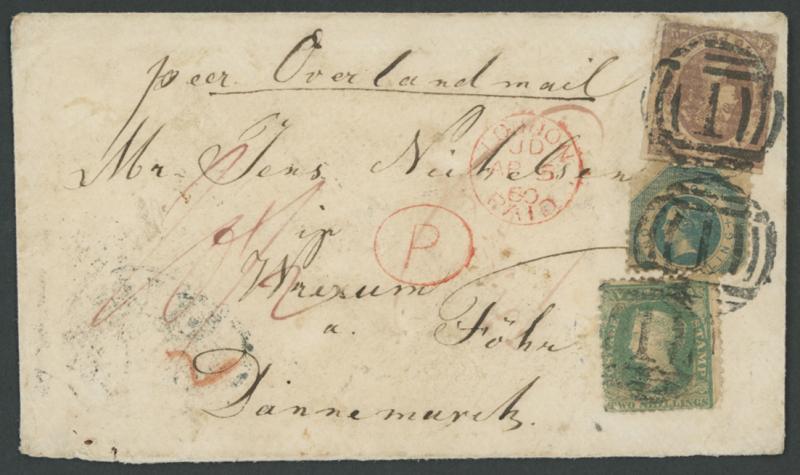 peer Overlandmail
Mr. Jens Nickelsen
in
Wrixum
a. Föhr
Dännemarck.
LONDON
JD
AP 5
60
PAID
P
1
1
STAMP
TWO SHILLINGS